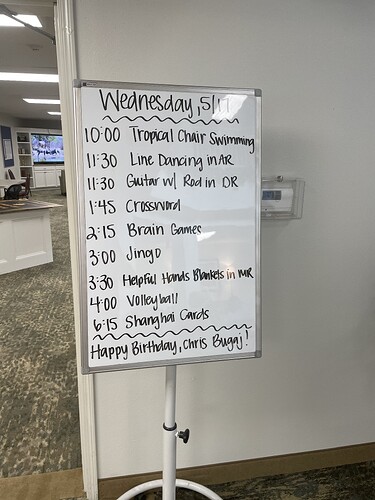 Wednesday, 5/17
10:00 Tropical Chair Swimming
11:30 Line Dancing in AR
11:30 Guitar w/ Rod in DR
1:45 Crossword
2:15 Brain Games
3:00 Jingo
3:30 Helpful Hands Blankets in MR
4:00 Volleyball
6:15 Shanghai Cards
Happy Birthday, Chris Bugaj!